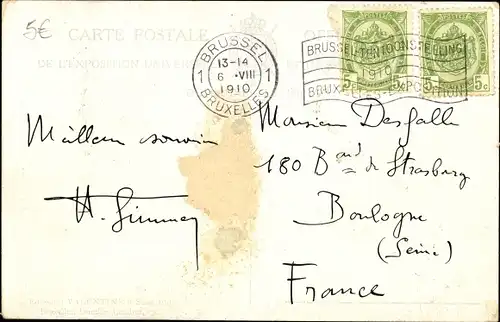 5€
CARTE POSTALE
DE L'EXPOSITION
BRUSSEL
1 13-14 1
6 VIII
1910
BRUXELLES
BRUSSEL-TENTOONSTELLING
1910
BRUXELLES-EXPOSITION
5c 5c 5c
Meilleur souvenir
Monsieur Desgalle
180 Bard de Strasburg
Boulogne
(Seine)
France